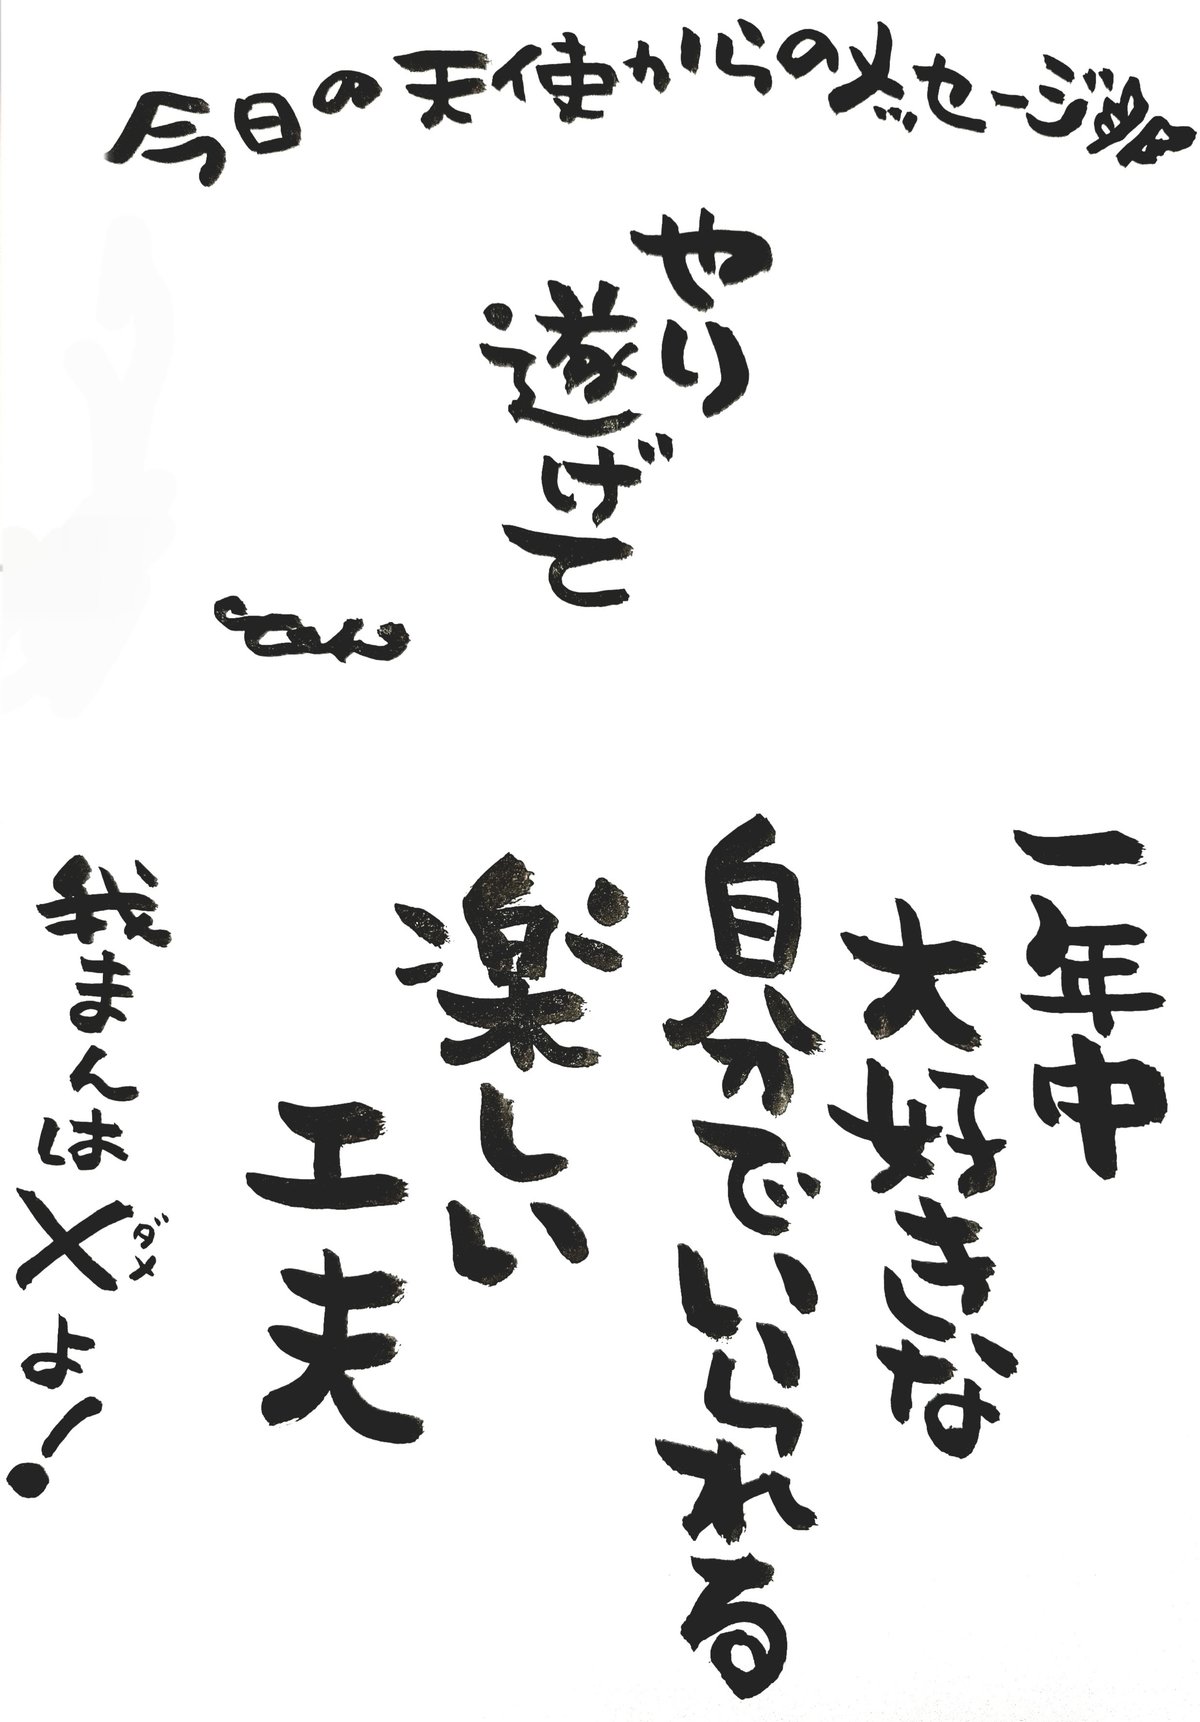 今日の天使からのメッセージ
やり
遂げて
一年中
大好きな
自分でいられる
楽しい
工夫
我まんは×よ！
ダメ